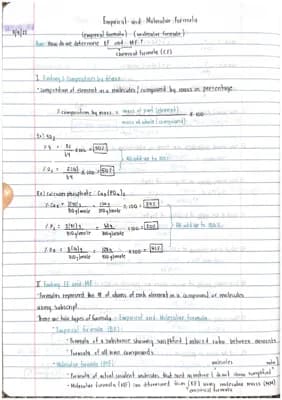 Empirical and Molecular Formula
(empirical formula) (molecular formula)
How do we determine EF and MF?
chemical formula (CF)
I Finding % composition by mass
composition of element in a molecules / compound by mass in percentage.
% composition by mass = mass of part (element) x 100
mass of whole (compound)
Ex) SO2
% S = 32 x 100 = 50%
64
All add up to 100%
% O2 = 2(16) x 100 = 50%
64
Ex) calcium phosphate: Ca3(PO4)2
310 g/mole 310 g/mole x 100 =
All add up to 100%
310 g/mole 310 g/mole x 100 = 20%
310 g/mole 310 g/mole x 100 = 41%
II Finding EF and MF
Formulas represent the # of atoms of each element in a compound or molecules
using subscript.
There are two types of formula - Empirical and Molecular formula
Empirical formula (EF):
Formula of a substance showing simplified / reduced ratio between elements
Formula of all ionic compounds
Molecular formula (MF): molecules
Formula of actual covalent molecules that exist in nature (don't show simplified ratio)
Molecular formula (MF) can determined from (EF) using molecular mass (MM)
empirical formula